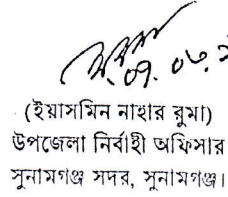 ০৭.০৮.২
(ইয়াসমিন নাহার রুমা)
উপজেলা নির্বাহী অফিসার
সুনামগঞ্জ সদর, সুনামগঞ্জ।